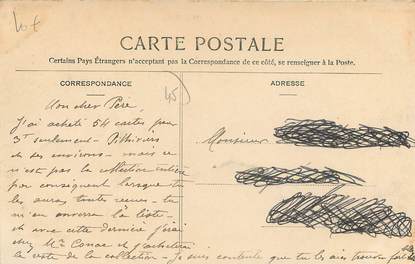 CARTE POSTALE
Certains Pays Étrangers n'acceptant pas la Correspondance de ce côté, se renseigner à la Poste.
CORRESPONDANCE
ADRESSE
45
Mon cher Père,
J'ai acheté 54 cartes pour
3f seulement - Pithiviers
et ses environs - mais ce
n'est pas la collection entière
par conséquent lorsque tu
les auras toutes reçues - tu
m'en enverras la liste -
et avec cette dernière j'irai
chez Mme et j'achèterai
le reste de la collection - Je suis contente que tu les aies
Monsieur